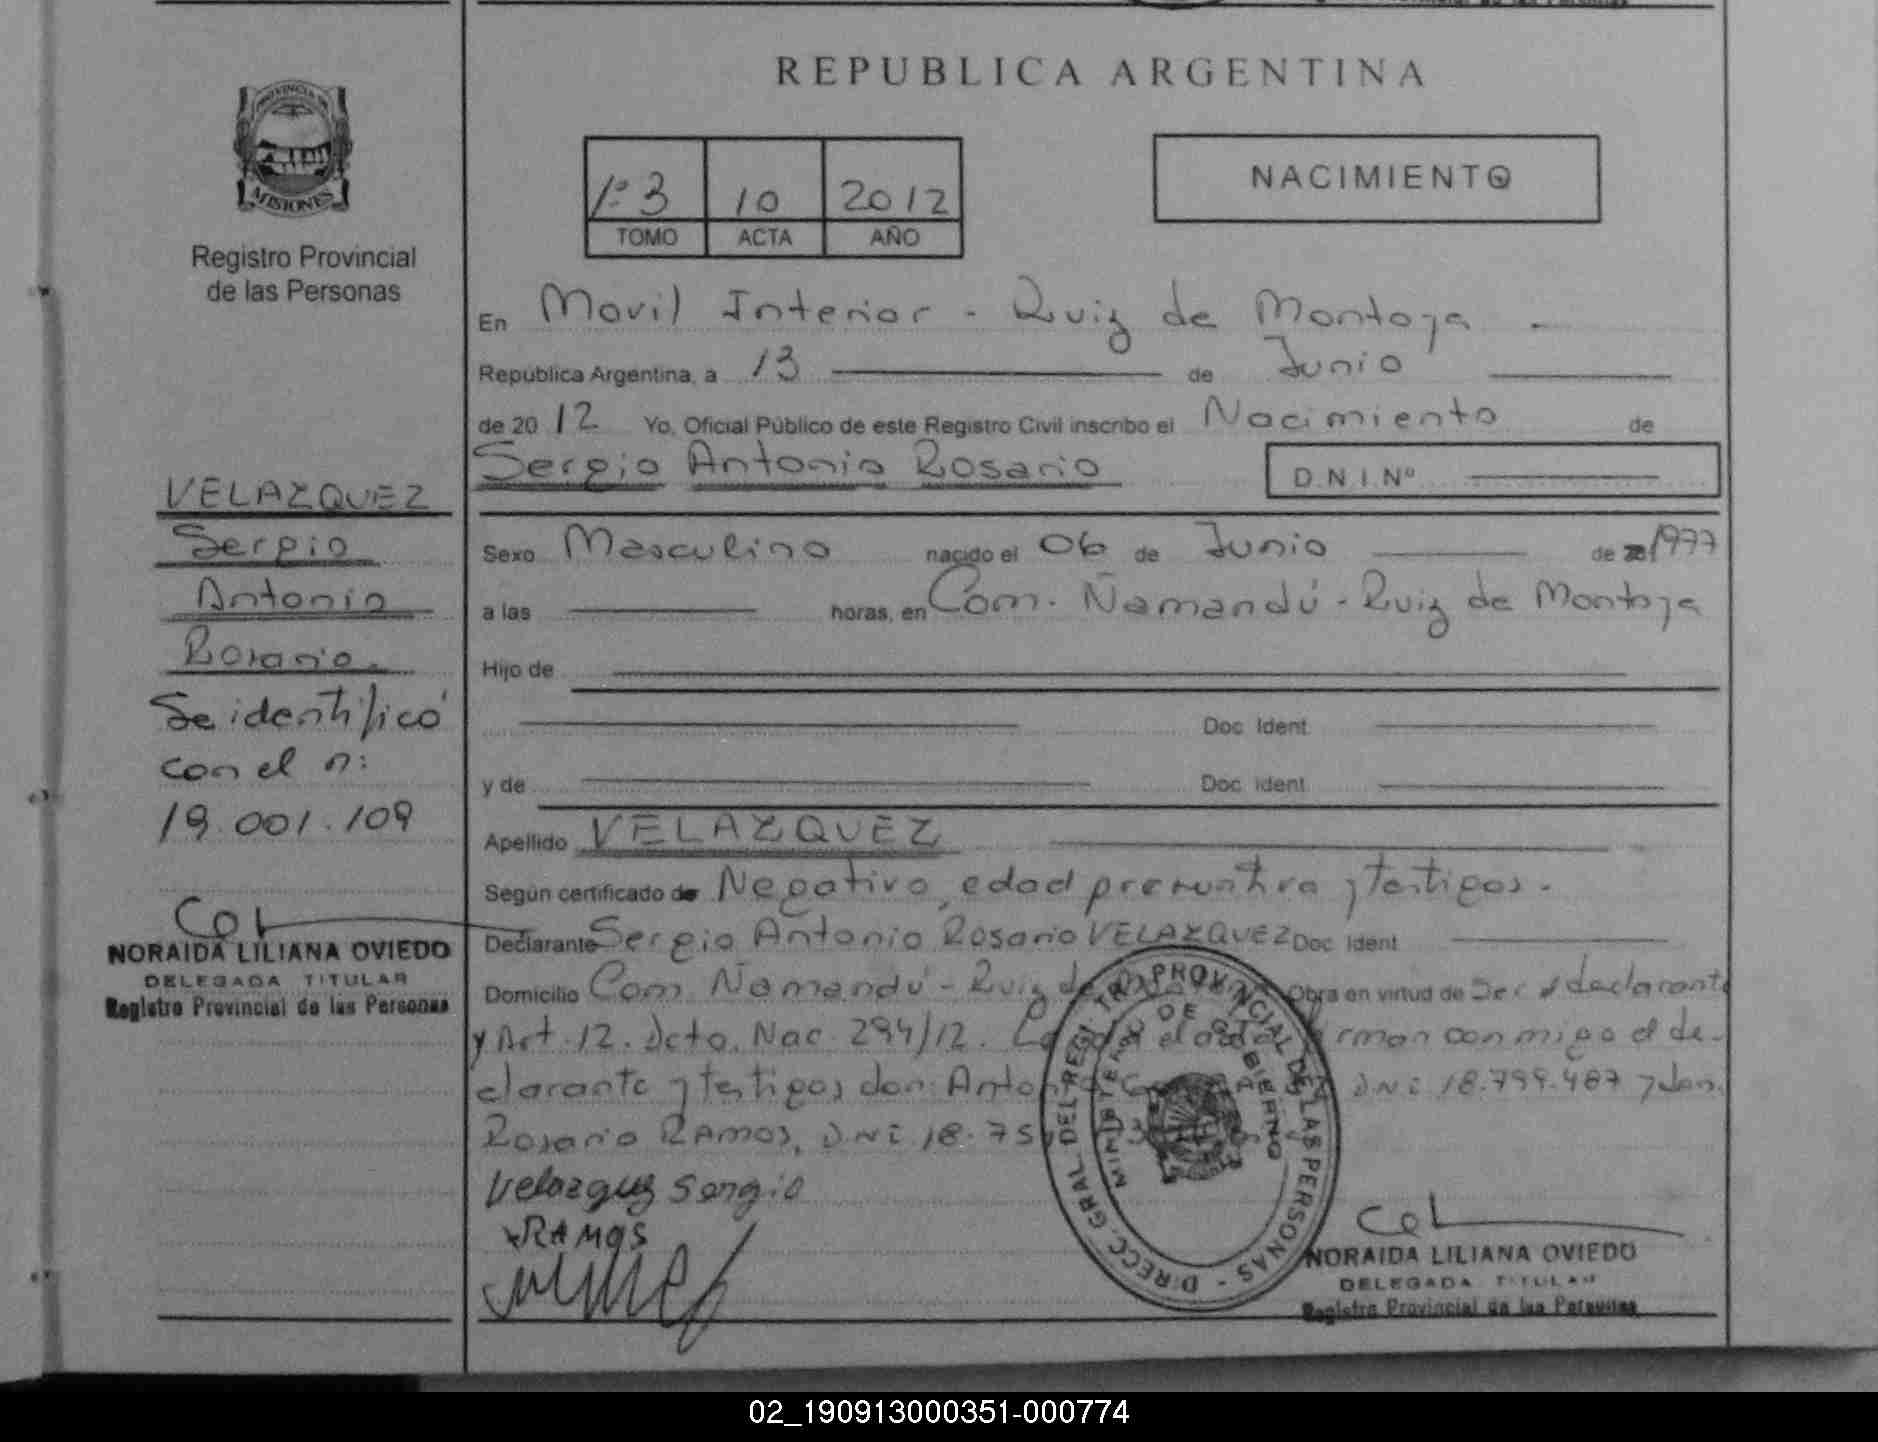 REPUBLICA ARGENTINA
PROVINCIA DE
MISIONES
Registro Provincial
de las Personas
1º 3 10 2012
TOMO ACTA AÑO
NACIMIENTO
En Movil Interior - Ruiz de Montoya -
República Argentina, a 13 de Junio
de 2012 Yo, Oficial Público de este Registro Civil inscribo el Nacimiento de
Sergio Antonio Rosario D.N.I. Nº
VELAZQUEZ
Sergio
Antonio
Rosario.
Se identificó
con el n:
19.001.109
NORAIDA LILIANA OVIEDO
DELEGADA TITULAR
Registro Provincial de las Personas
Sexo Masculino nacido el 06 de Junio de 1977
a las horas, en Com. Ñamandú - Ruiz de Montoya
Hijo de
Doc. Ident.
y de Doc. Ident.
Apellido VELAZQUEZ
Según certificado de Negativo, edad presuntiva y testigos.
Declarante Sergio Antonio Rosario VELAZQUEZ Doc. Ident.
Domicilio Com. Ñamandú - Ruiz de Obra en virtud de Ser declarante
y Art. 12. Dcto. Nac. 294/12. el acta firman conmigo el de-
clarante y testigos don: Antonio DNI 18.799.487 y don.
Rosario RAMOS, DNI 18.75
Velazquez Sergio
RAMOS
DIRECC. GRAL. DEL REGISTRO PROVINCIAL DE LAS PERSONAS -
MINISTERIO DE GOBIERNO
NORAIDA LILIANA OVIEDO
DELEGADA TITULAR
Registro Provincial de las Personas
02_190913000351-000774